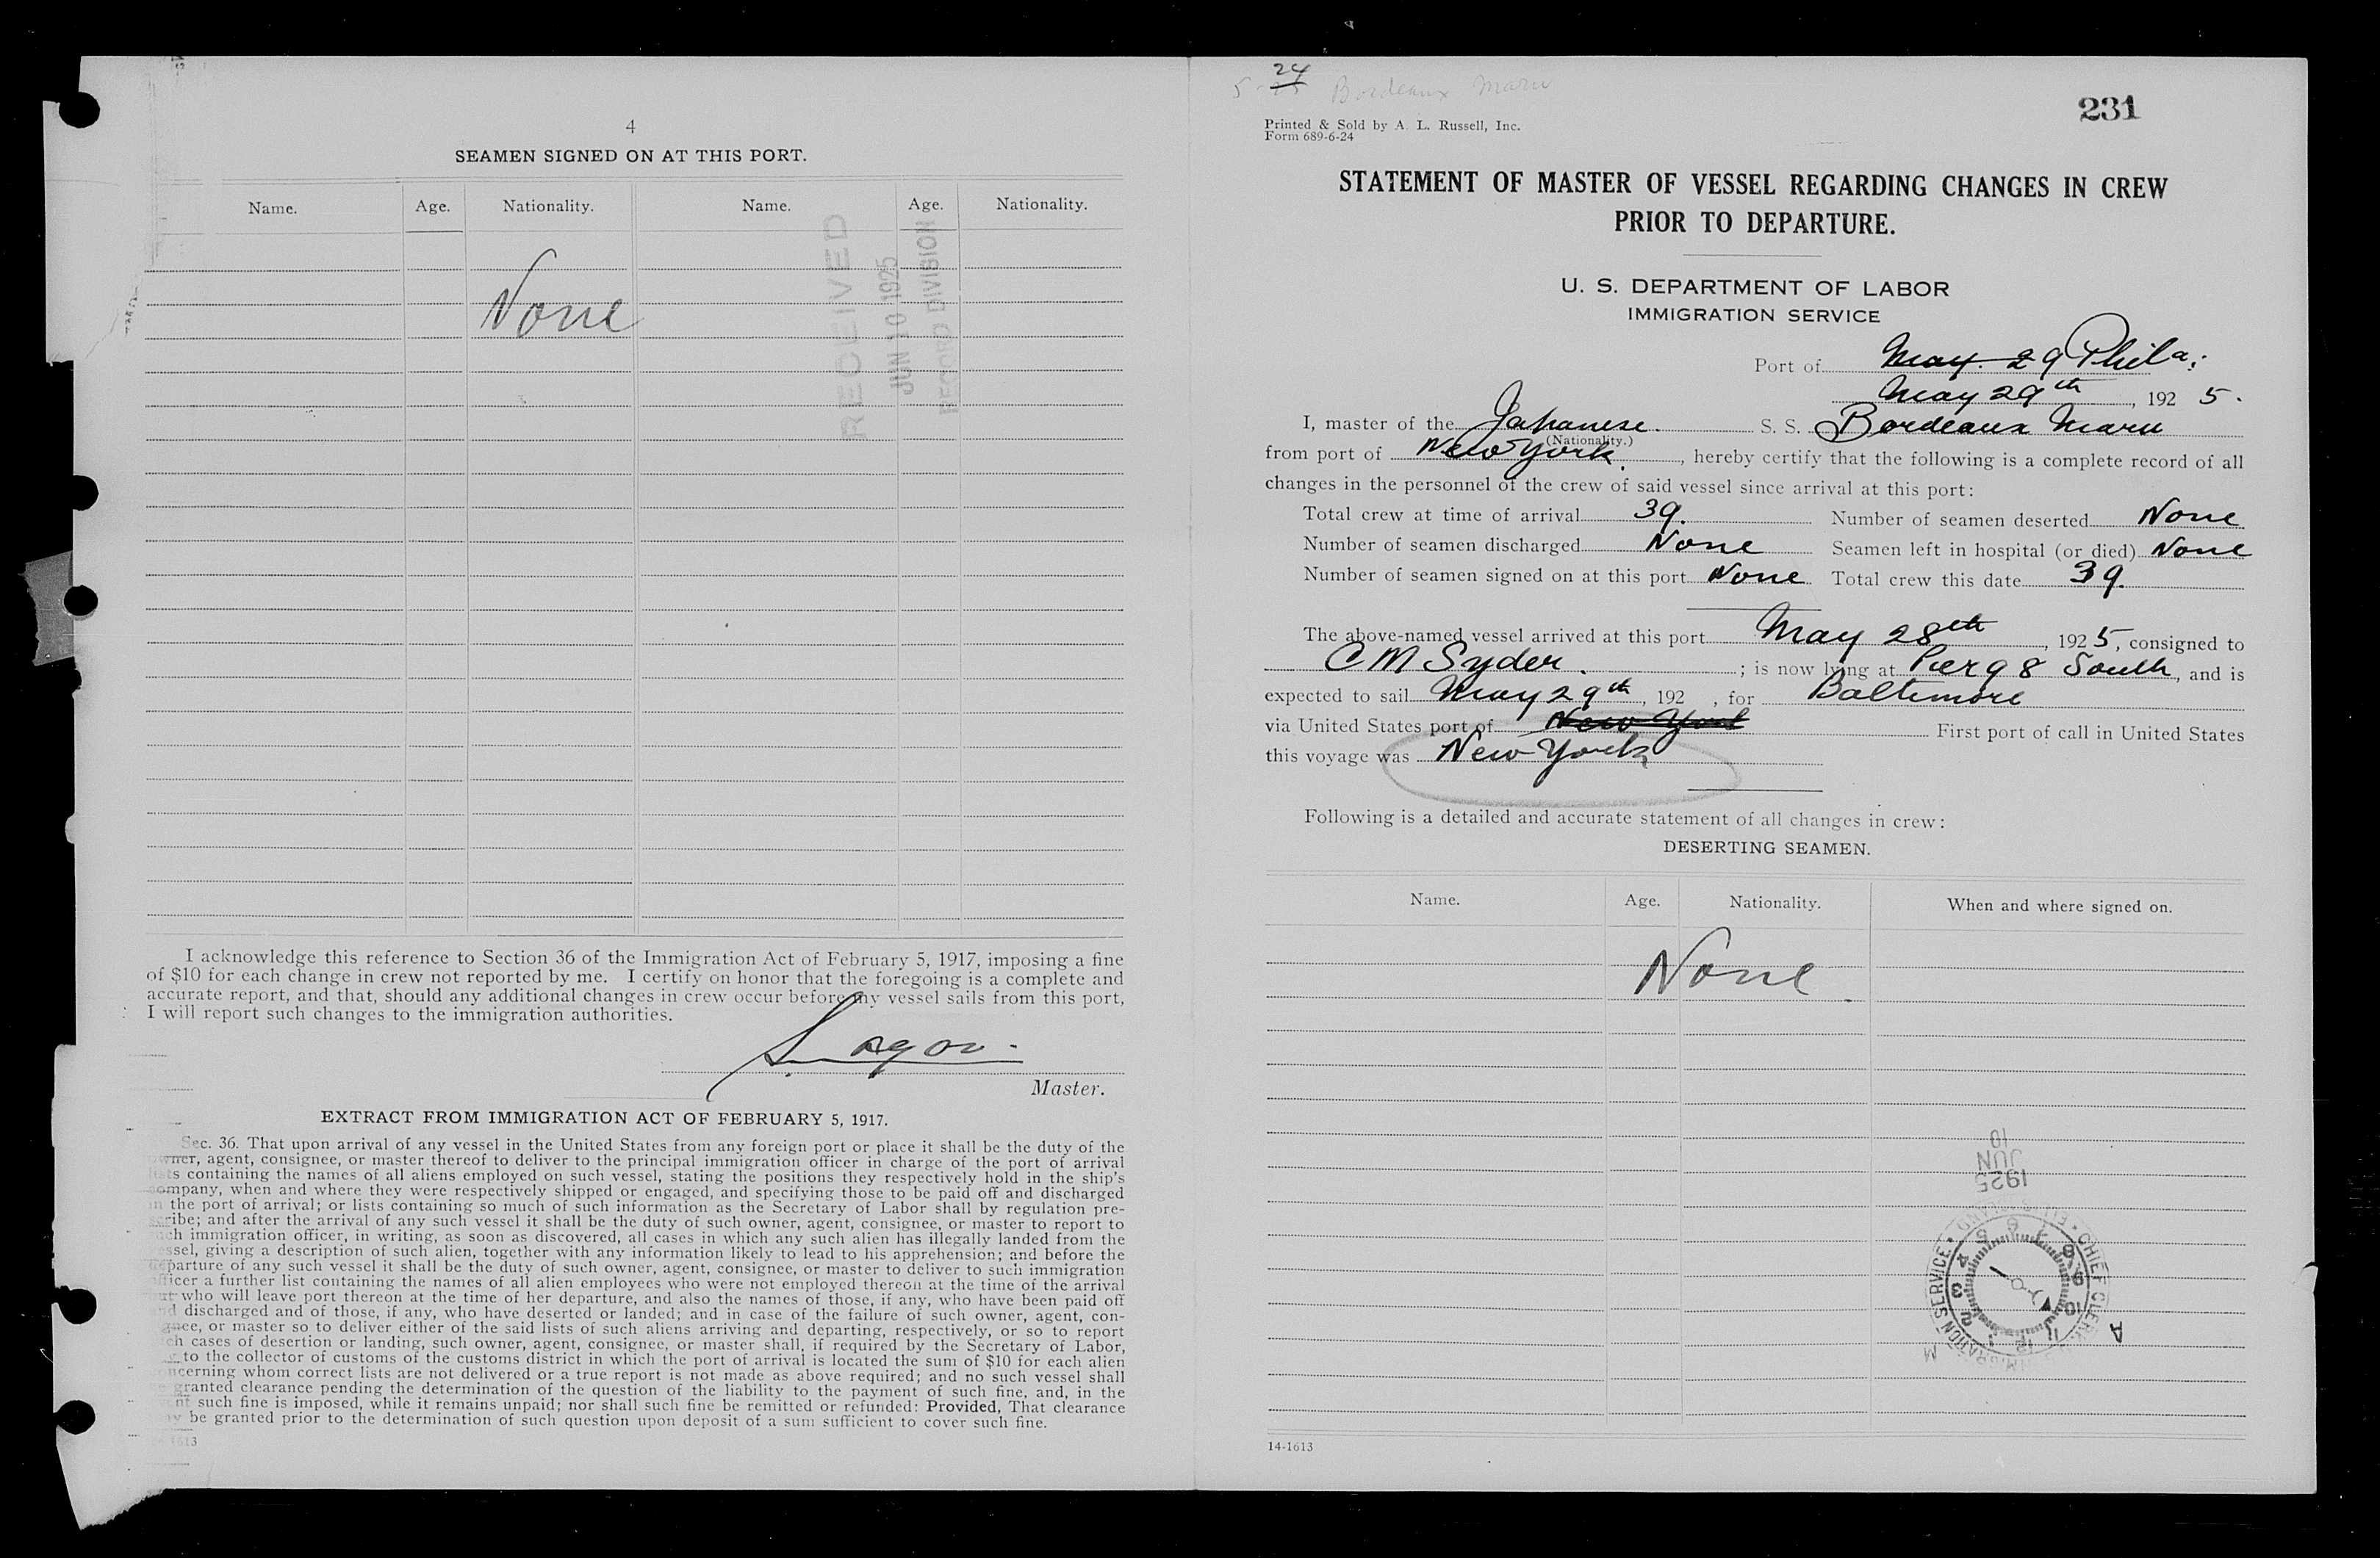 4
SEAMEN SIGNED ON AT THIS PORT.
Name. Age. Nationality. Name. Age. Nationality.
None
RECEIVED
JUN 10 1925
RECORD DIVISION
I acknowledge this reference to Section 36 of the Immigration Act of February 5, 1917, imposing a fine
of $10 for each change in crew not reported by me. I certify on honor that the foregoing is a complete and
accurate report, and that, should any additional changes in crew occur before my vessel sails from this port,
I will report such changes to the immigration authorities.
Master.
EXTRACT FROM IMMIGRATION ACT OF FEBRUARY 5, 1917.
Sec. 36. That upon arrival of any vessel in the United States from any foreign port or place it shall be the duty of the
owner, agent, consignee, or master thereof to deliver to the principal immigration officer in charge of the port of arrival
lists containing the names of all aliens employed on such vessel, stating the positions they respectively hold in the ship's
company, when and where they were respectively shipped or engaged, and specifying those to be paid off and discharged
in the port of arrival; or lists containing so much of such information as the Secretary of Labor shall by regulation pre-
scribe; and after the arrival of any such vessel it shall be the duty of such owner, agent, consignee, or master to report to
such immigration officer, in writing, as soon as discovered, all cases in which any such alien has illegally landed from the
vessel, giving a description of such alien, together with any information likely to lead to his apprehension; and before the
departure of any such vessel it shall be the duty of such owner, agent, consignee, or master to deliver to such immigration
officer a further list containing the names of all alien employees who were not employed thereon at the time of the arrival
but who will leave port thereon at the time of her departure, and also the names of those, if any, who have been paid off
and discharged and of those, if any, who have deserted or landed; and in case of the failure of such owner, agent, con-
signee, or master so to deliver either of the said lists of such aliens arriving and departing, respectively, or so to report
such cases of desertion or landing, such owner, agent, consignee, or master shall, if required by the Secretary of Labor,
to the collector of customs of the customs district in which the port of arrival is located the sum of $10 for each alien
concerning whom correct lists are not delivered or a true report is not made as above required; and no such vessel shall
be granted clearance pending the determination of the question of the liability to the payment of such fine, and, in the
event such fine is imposed, while it remains unpaid; nor shall such fine be remitted or refunded: Provided, That clearance
may be granted prior to the determination of such question upon deposit of a sum sufficient to cover such fine.
1613
24
5- Bordeaux Maru
231
Printed & Sold by A. L. Russell, Inc.
Form 689-6-24
STATEMENT OF MASTER OF VESSEL REGARDING CHANGES IN CREW
PRIOR TO DEPARTURE.
U. S. DEPARTMENT OF LABOR
IMMIGRATION SERVICE
Port of May. 29 Phila.
May 29th, 1925.
I, master of the Japanese. S. S. Bordeaux Maru
(Nationality.)
from port of New York., hereby certify that the following is a complete record of all
changes in the personnel of the crew of said vessel since arrival at this port:
Total crew at time of arrival 39. Number of seamen deserted None
Number of seamen discharged None Seamen left in hospital (or died) None
Number of seamen signed on at this port None Total crew this date 39.
The above-named vessel arrived at this port May 28th, 1925, consigned to
C M Syder.; is now lying at Pier 98 South, and is
expected to sail May 29th, 192 , for Baltimore
via United States port of New York First port of call in United States
this voyage was New York
Following is a detailed and accurate statement of all changes in crew:
DESERTING SEAMEN.
Name. Age. Nationality. When and where signed on.
None
10
JUN
1925
IMMIGRATION SERVICE • ELLIS ISLAND • CHIEF CLERK
1 2 3 4 5 6 7 8 9 10 11 12
A
M
14-1613